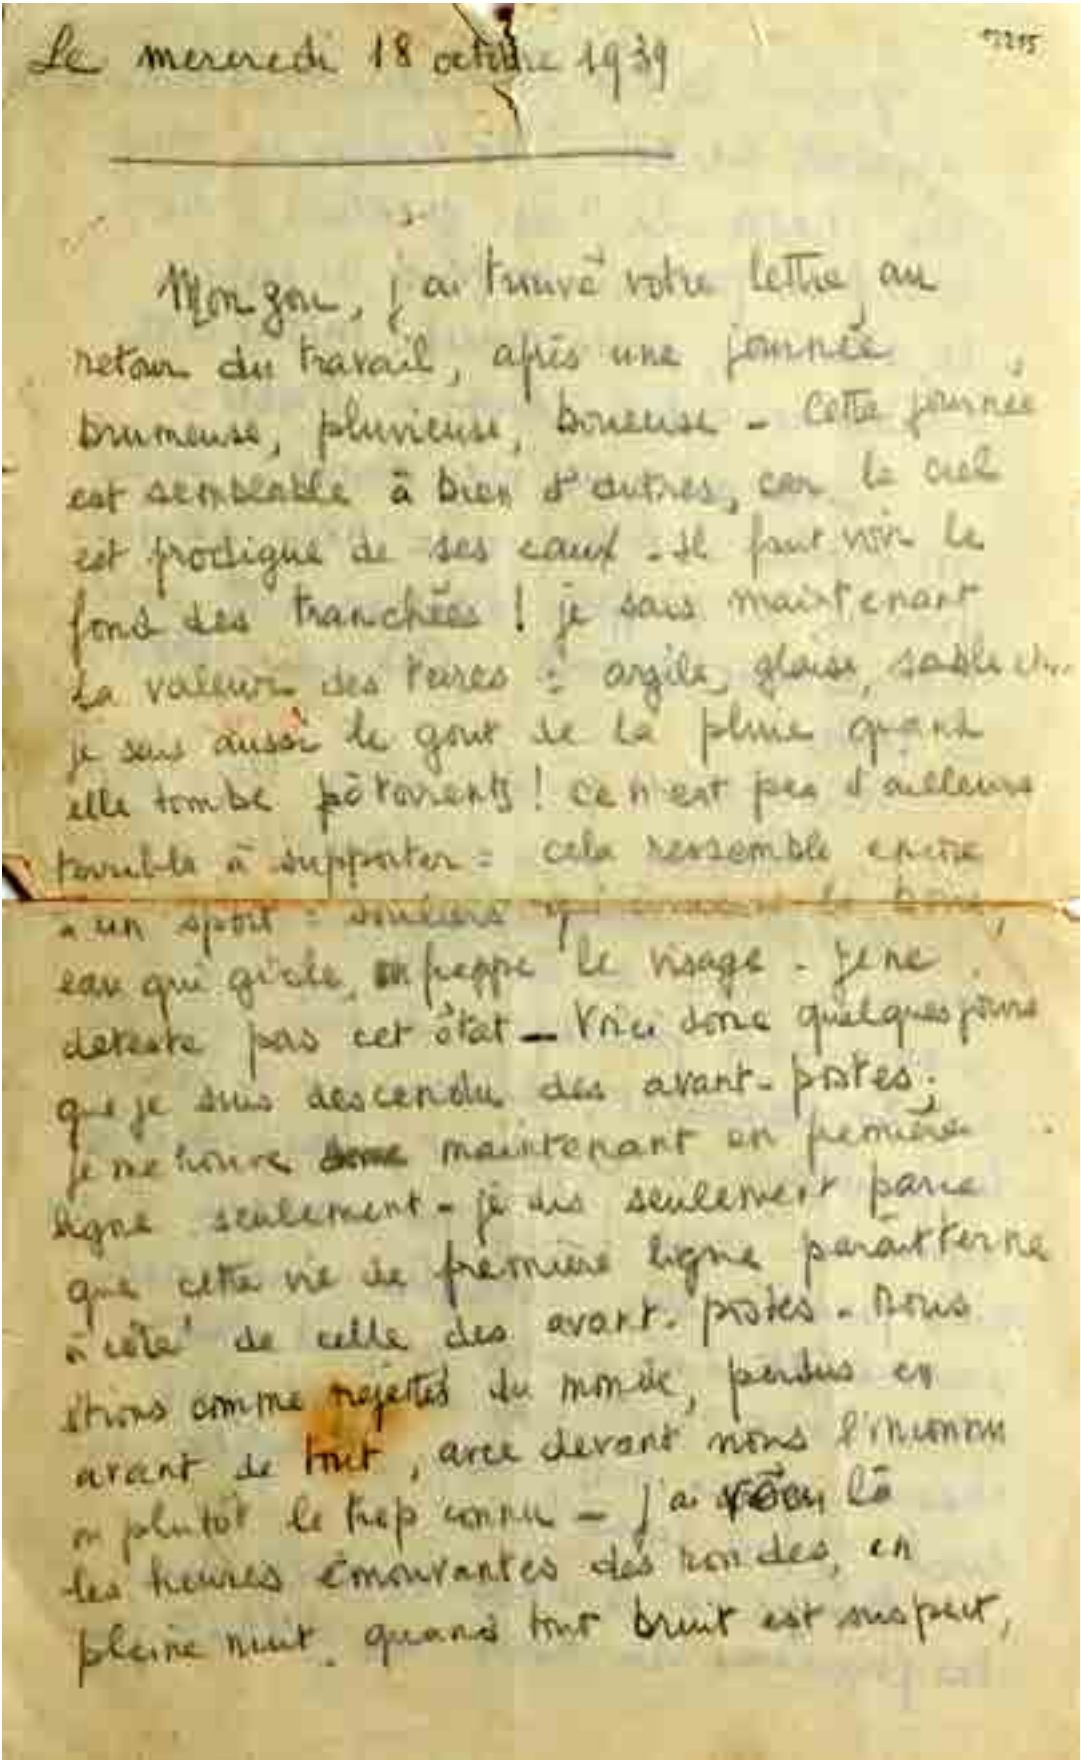 Le mercredi 18 octobre 1939
Mon gou, j'ai trouvé votre lettre, au
retour du travail, après une journée
brumeuse, pluvieuse, boueuse - Cette journée
est semblable à bien d'autres, car le ciel
est prodigue de ses eaux - Il faut voir le
fond des tranchées ! je sais maintenant
la valeur des terres : argile, glaise, sable etc..
je sais aussi le gout de la pluie quand
elle tombe à torrents ! ce n'est pas d'ailleurs
terrible à supporter : cela ressemble encore
à un sport : souliers qui la boue,
eau qui gicle, frappe le visage - Je ne
déteste pas cet état - Voici donc quelques jours
que je suis descendu des avant-postes ;
je me trouve maintenant en première
ligne seulement - je dis seulement parce
que cette vie de première ligne paraît terne
à côté de celle des avant-postes - Nous
étions comme rejetés du monde, perdus en
avant de tout, avec devant nous l'inconnu
ou plutôt le trop connu - j'ai vécu là
les heures émouvantes des rondes, en
pleine nuit, quand tout bruit est suspect,